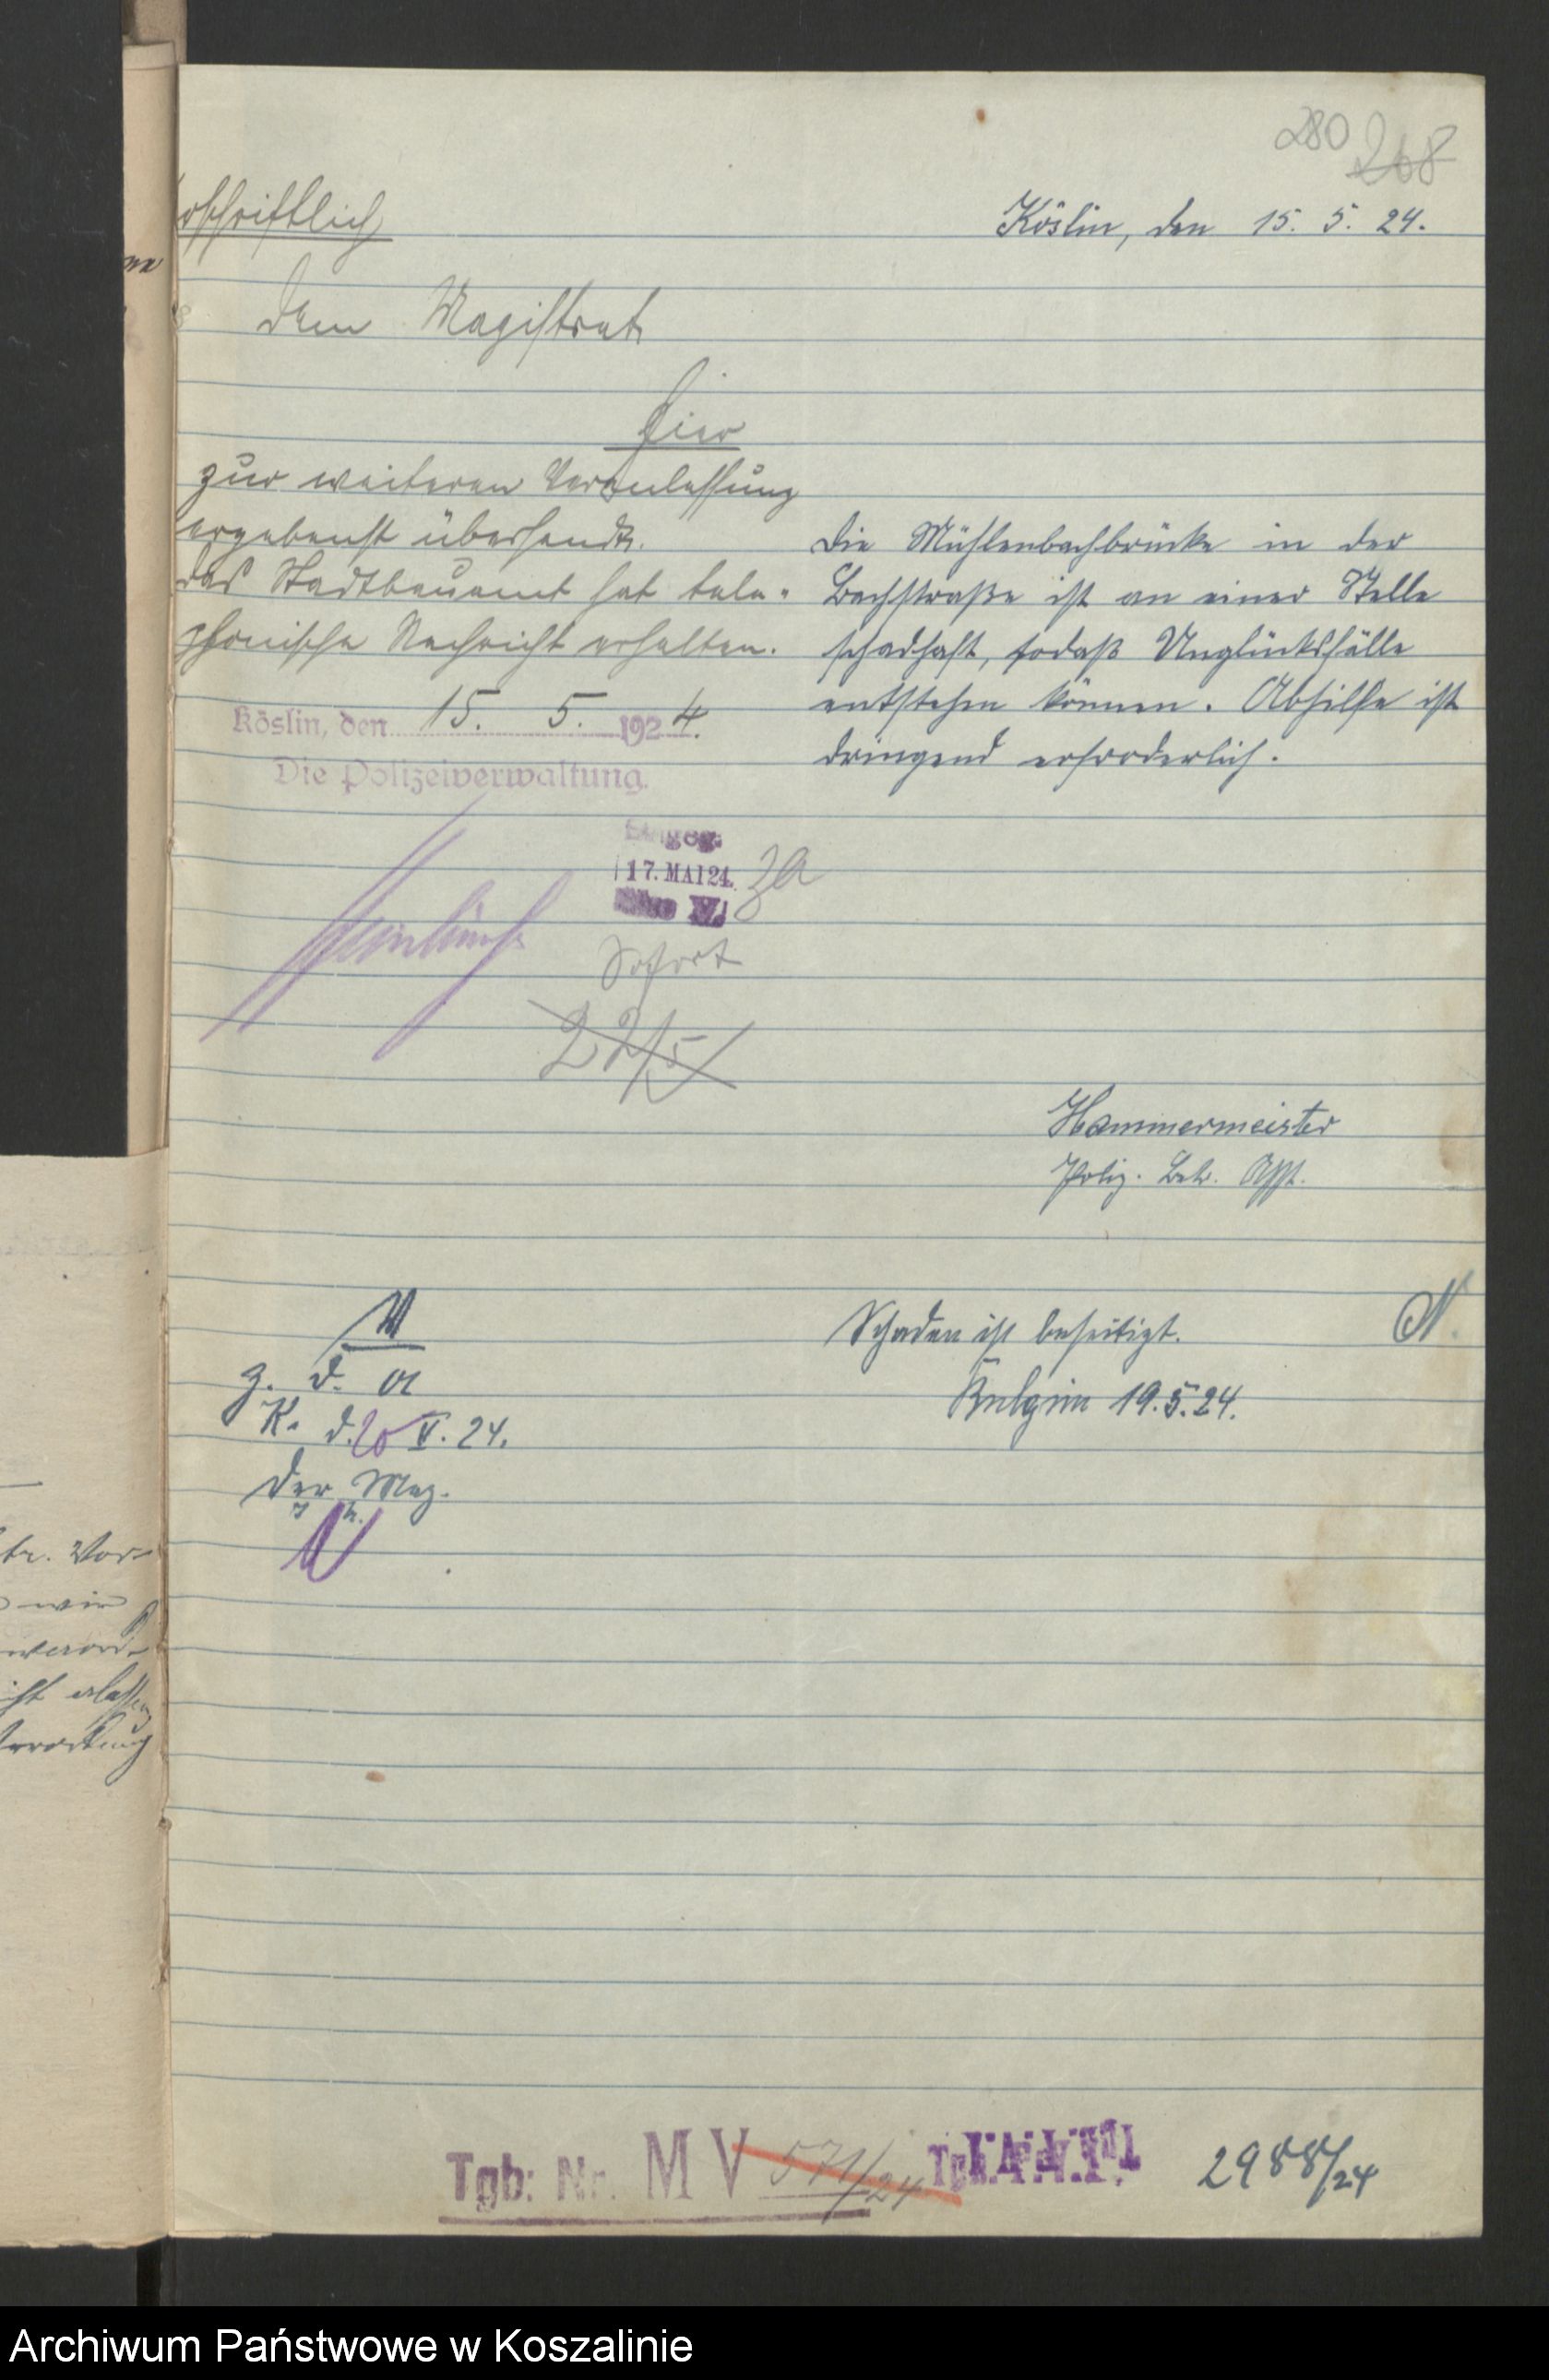 280 268
Urschriftlich
Köslin, den 15. 5. 24.
dem Magistrat
hier
zur weiteren Veranlassung
ergebenst übersandt.
das Stadtbauamt hat tele-
phonische Nachricht erhalten.
Köslin, den 15. 5. 1924.
Die Polizeiverwaltung.
Die Mühlenbachbrücke in der
Bachstraße ist an einer Stelle
schadhaft, sodaß Unglücksfälle
entstehen können. Abhilfe ist
dringend erforderlich.
Eingeg.
17. MAI 24.
Sofort
22/5
Hammermeister
Poliz. Betr. Asst.
Schaden ist beseitigt.
19.5.24.
z. d. A
K. d. 20 V. 24.
Der Mag.
Tgb: Nr. M V 571/24
2988/24
tr. Vor-
wir
ist erlassen
Archiwum Państwowe w Koszalinie